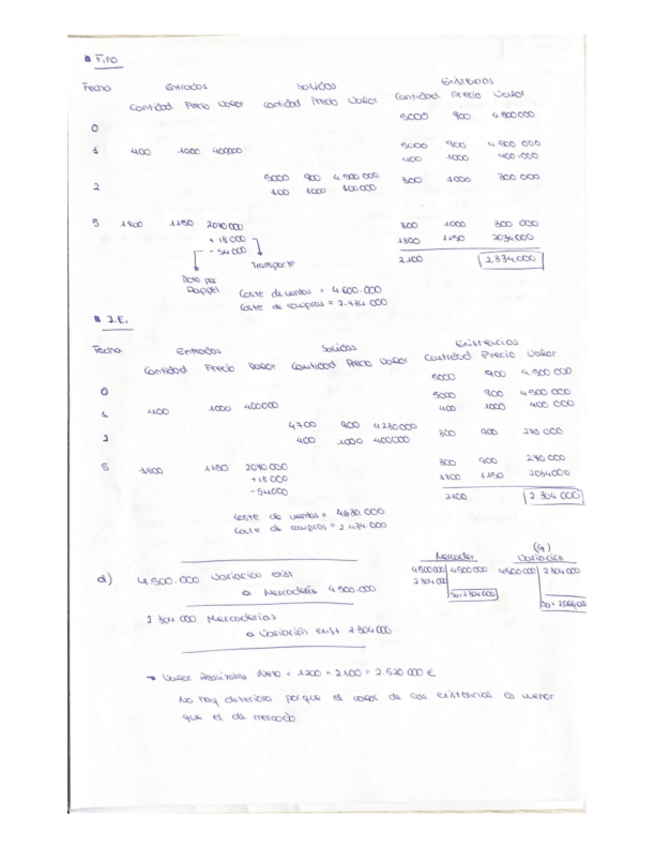 F.I.FO
Fecha Entradas Salidas Existencias
Cantidad Precio Valor Cantidad Precio Valor Cantidad Precio Valor
0 5000 900 4.500.000
1 400 1000 400000 5000 900 4.500 000
400 1000 400.000
2 5000 900 4 500 000 300 1000 300 000
100 1000 100.000
5 1800 1150 2070 000 300 1000 300 000
+ 18 000 1800 1150 2034000
- 54 000 2100 2.334.000
Transporte
Dcto por
Rappel
Coste de ventas = 4 600.000
Coste de compras = 2.434 000
I.E.
Fecha Entradas Salidas Existencias
Cantidad Precio Valor Cantidad Precio Valor Cantidad Precio Valor
5000 900 4.500 000
0 5000 900 4 500 000
1 400 1000 400000 400 1000 400 000
2 4700 900 4230000 300 900 270 000
400 1000 400000
5 1800 1150 2070 000 300 900 270 000
+18 000 1800 1150 2034000
-54000 2100 2.304 000
Coste de ventas = 4630.000
Coste de compras = 2 434.000
d) 4 500.000 Variación exist
a Mercaderías 4 500.000
2 304 000 Mercaderías
a Variación exist 2 304 000
Mercader (G) Variación
4500000 4500000 4500000 2 304 000
2 304 000
Sd = 2 304 000
→ Valor Realizable Neto = 1200 × 2100 = 2.520 000 €
No hay deterioro porque el valor de las existencias es menor
que el de mercado.